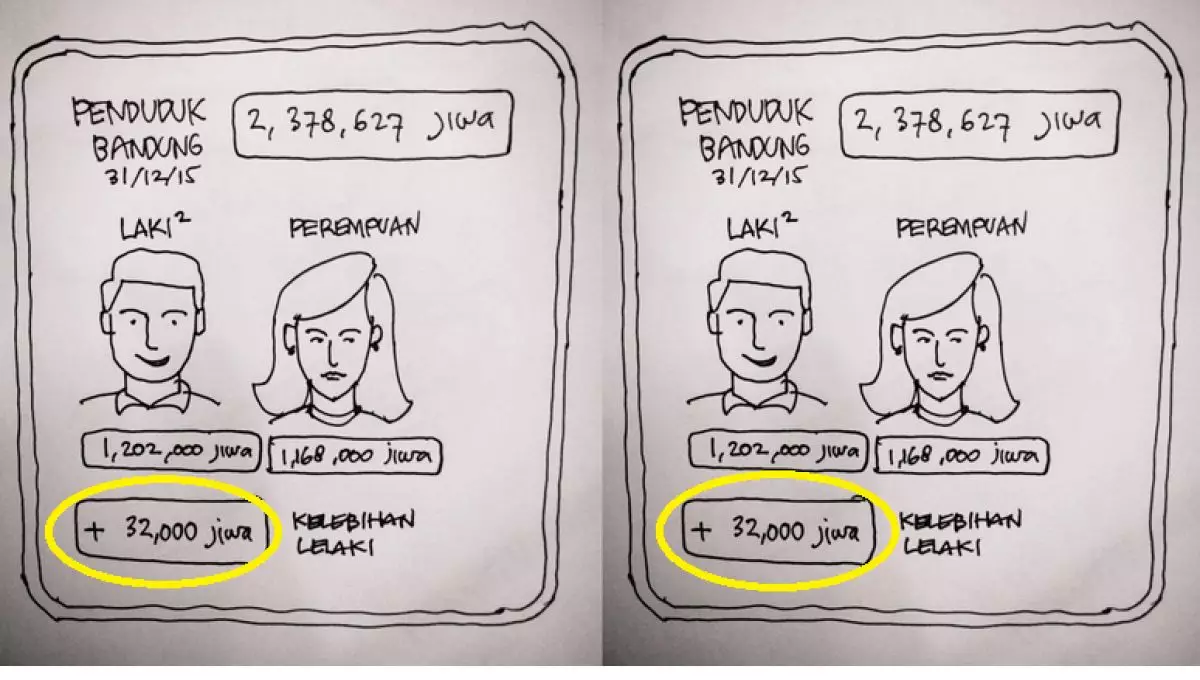 PENDUDUK
BANDUNG
31/12/15
2,378,627 jiwa
LAKI²
PEREMPUAN
1,202,000 jiwa
1,168,000 jiwa
+ 32,000 jiwa
KELEBIHAN
LELAKI
PENDUDUK
BANDUNG
31/12/15
2,378,627 jiwa
LAKI²
PEREMPUAN
1,202,000 jiwa
1,168,000 jiwa
+ 32,000 jiwa
KELEBIHAN
LELAKI